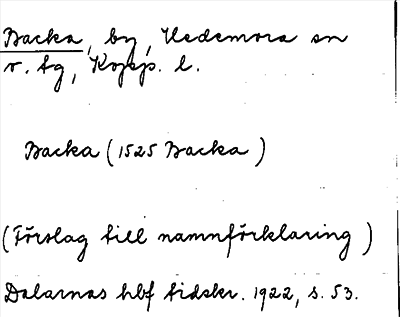 Backa, by, Hedemora sn
v. tg, Kopp. l.
Backa (1525 Backa)
(Förslag till namnförklaring)
Dalarnas hbf tidskr. 1922, s. 53.